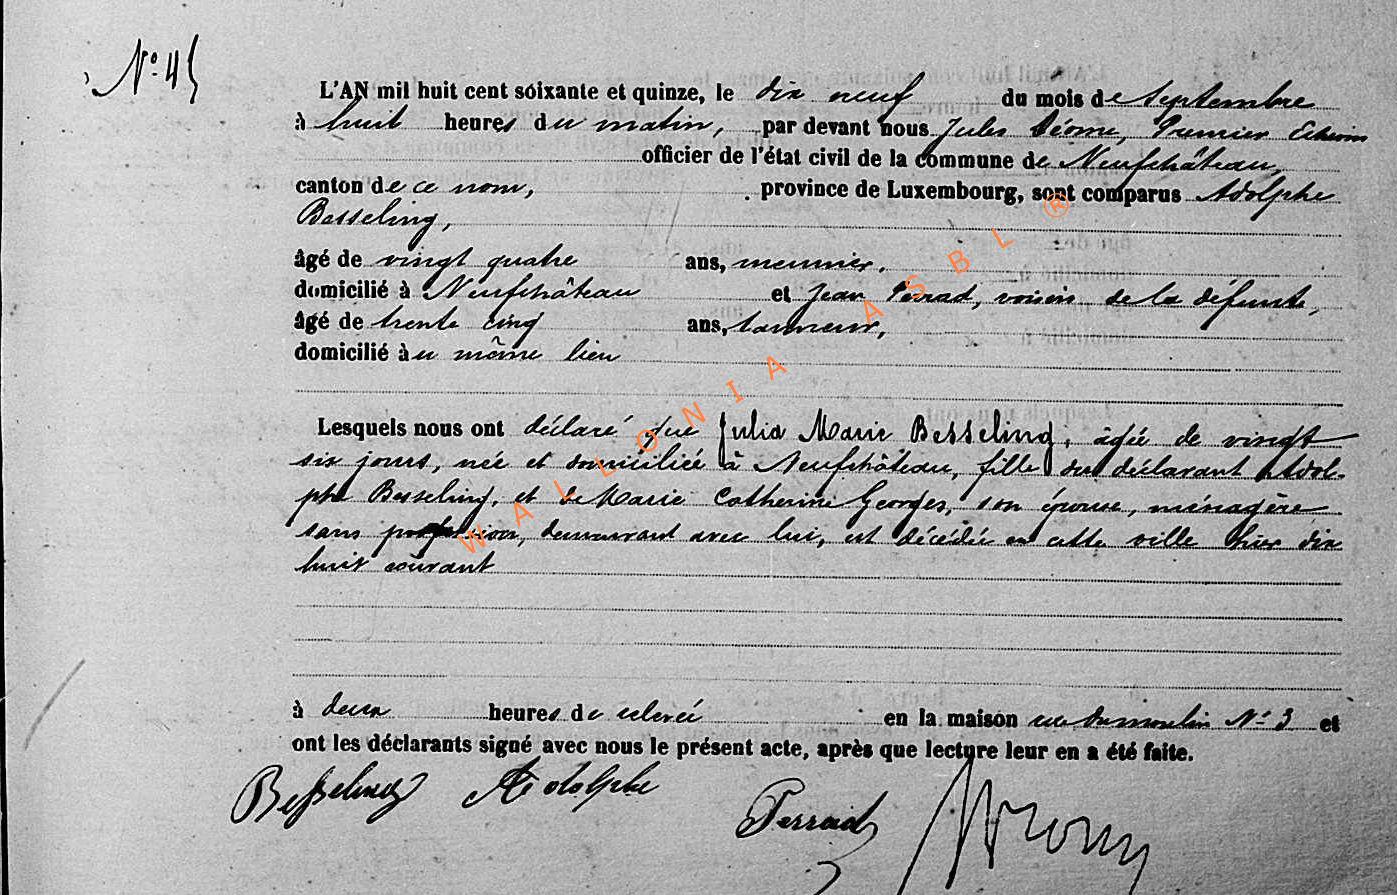 N° 45
L'AN mil huit cent soixante et quinze, le dix neuf du mois de Septembre
à huit heures du matin, par devant nous Jules Premier Echevin
officier de l'état civil de la commune de Neufchâteau,
canton de ce nom, province de Luxembourg, sont comparus Adolphe
Besseling,
âgé de vingt quatre ans, meunier,
domicilié à Neufchâteau et Jean Perrad, voisin de la défunte,
âgé de trente cinq ans, tanneur,
domicilié au même lieu
Lesquels nous ont déclaré que Julia Marie Besseling, âgée de vingt
six jours, née et domiciliée à Neufchâteau, fille du déclarant Adol-
phe Besseling, et de Marie Catherine Georges, son épouse, ménagère
sans profession, demeurant avec lui, est décédée en cette ville hier dix
huit courant
à deux heures de relevée en la maison rue du moulin N° 3 et
ont les déclarants signé avec nous le présent acte, après que lecture leur en a été faite.
Besseling Adolphe Perrad
WALLONIA ASBL ®